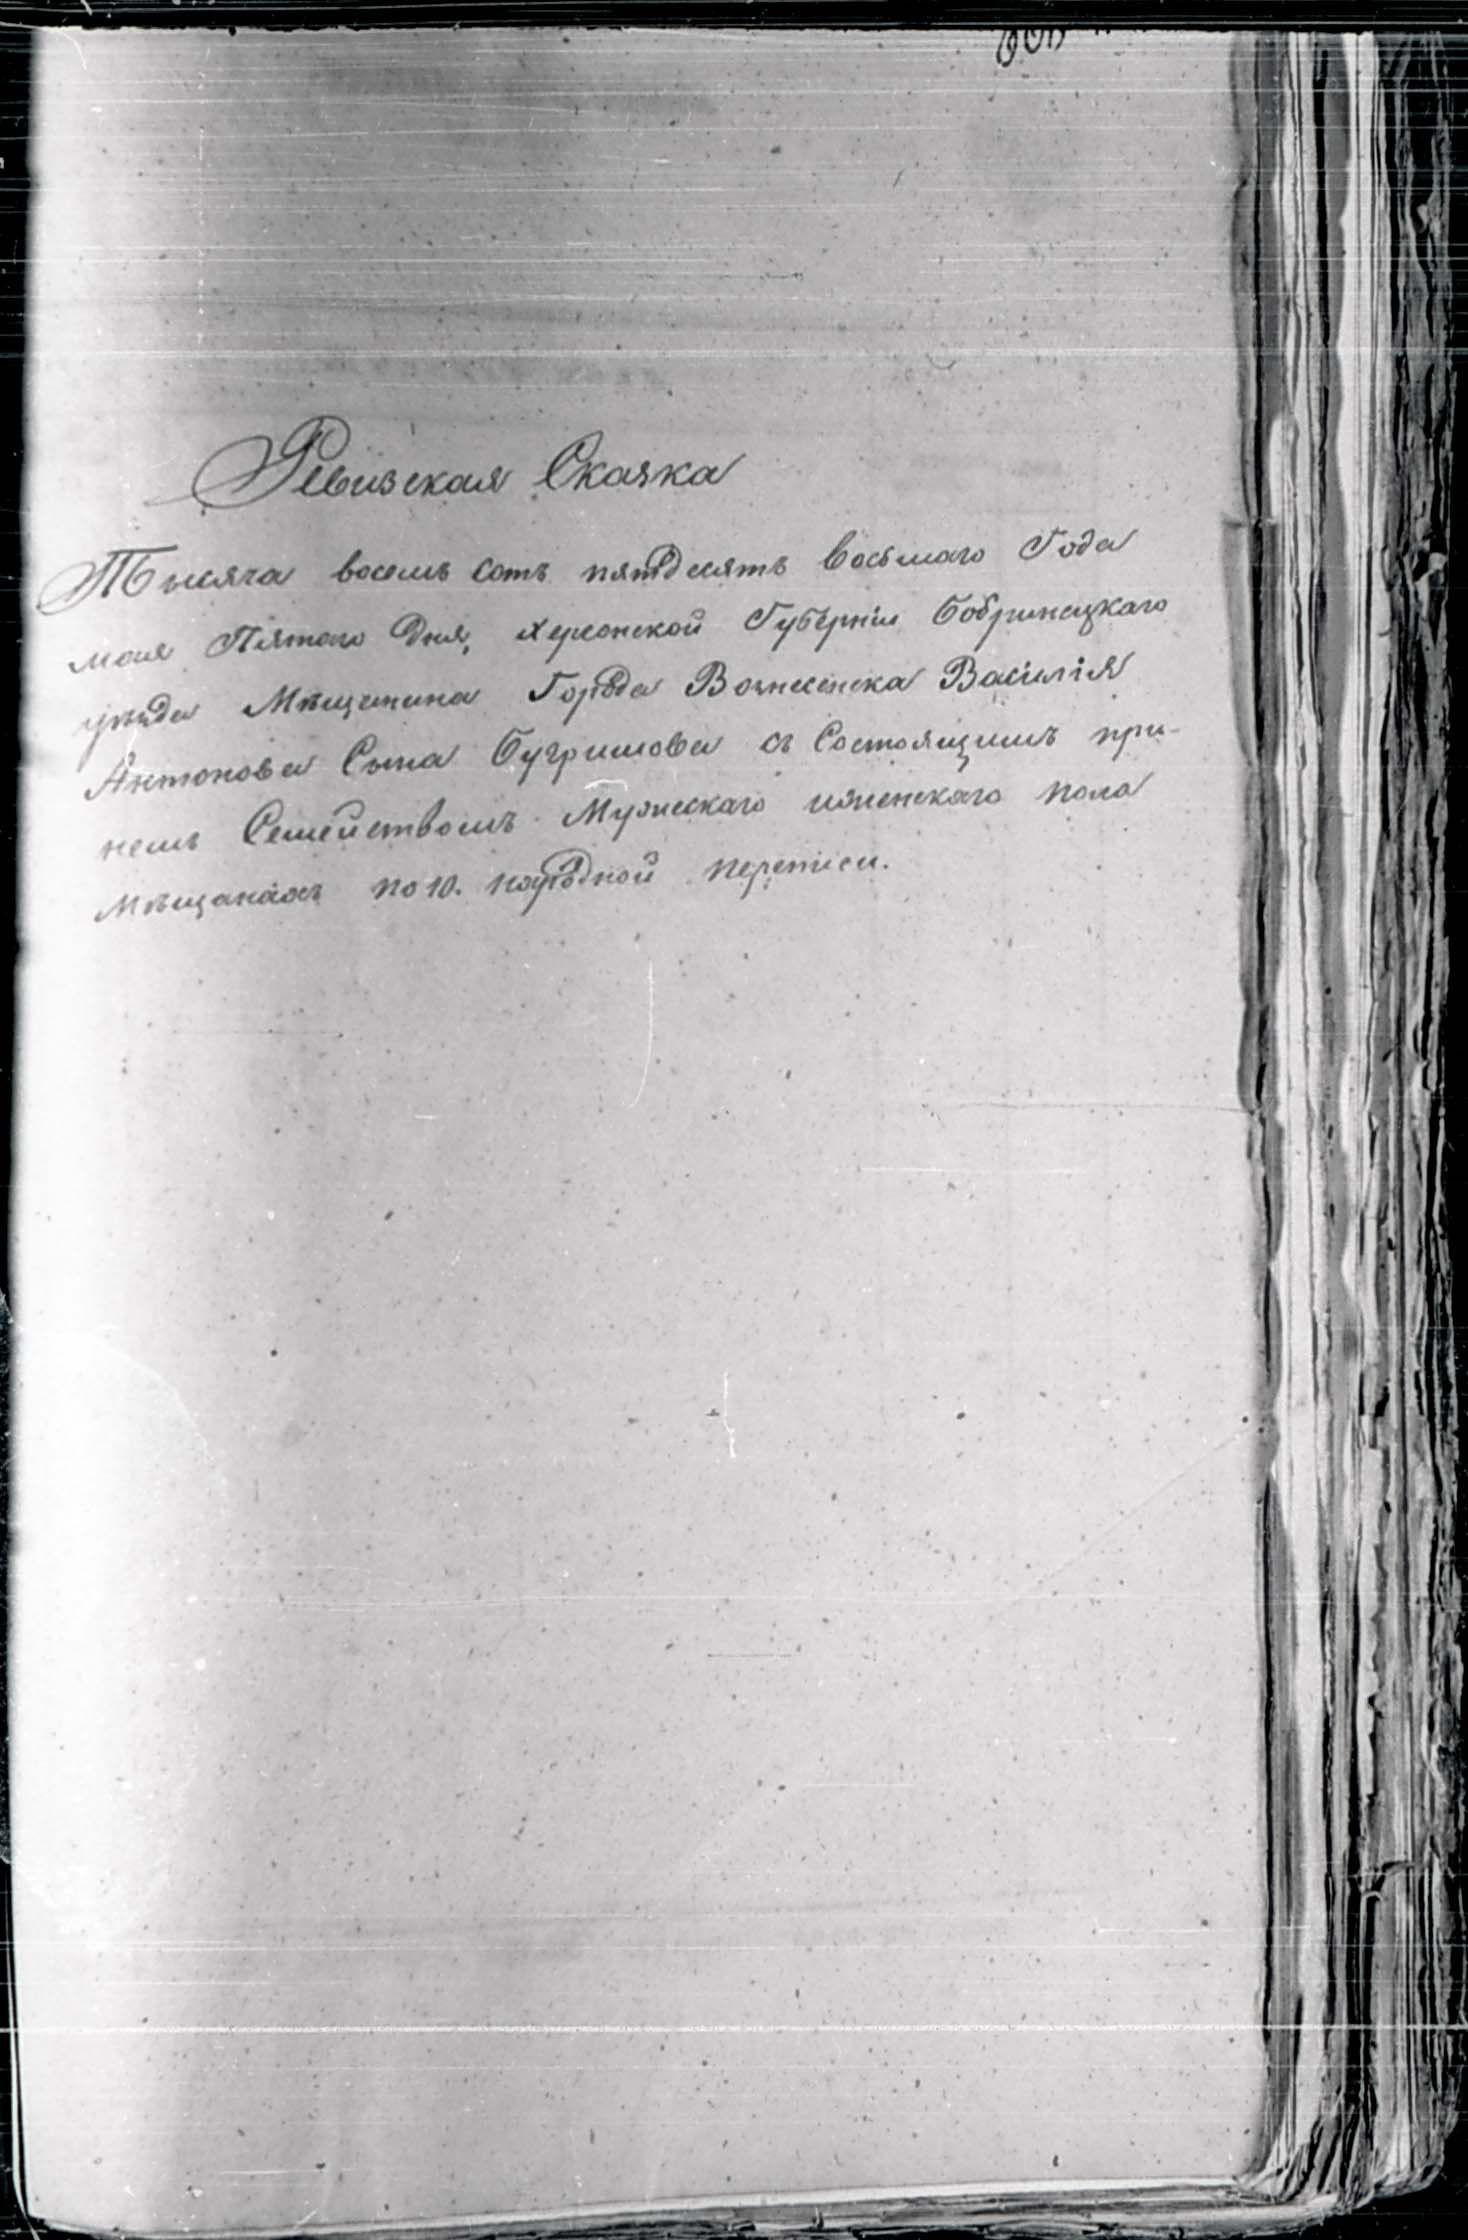 Ревизская Сказка
Тысяча восемь сотъ пятдесятъ восьмаго Года
мая Пятого Дня, Херсонской Губерніи Бобринецкаго
уѣзда Мѣщанина Города Вознесенска Василія
Антонова Сына Бугримова съ Состоящимъ при-
немъ Семействомъ Мужескаго иженскаго пола
Мѣщанахъ по 10. народной переписи.